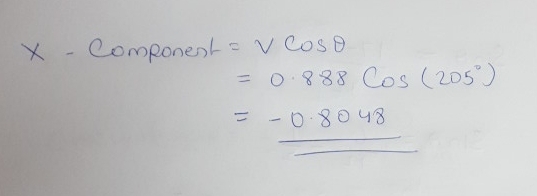 X - Component = V Cosθ
= 0.888 Cos (205°)
= -0.8048